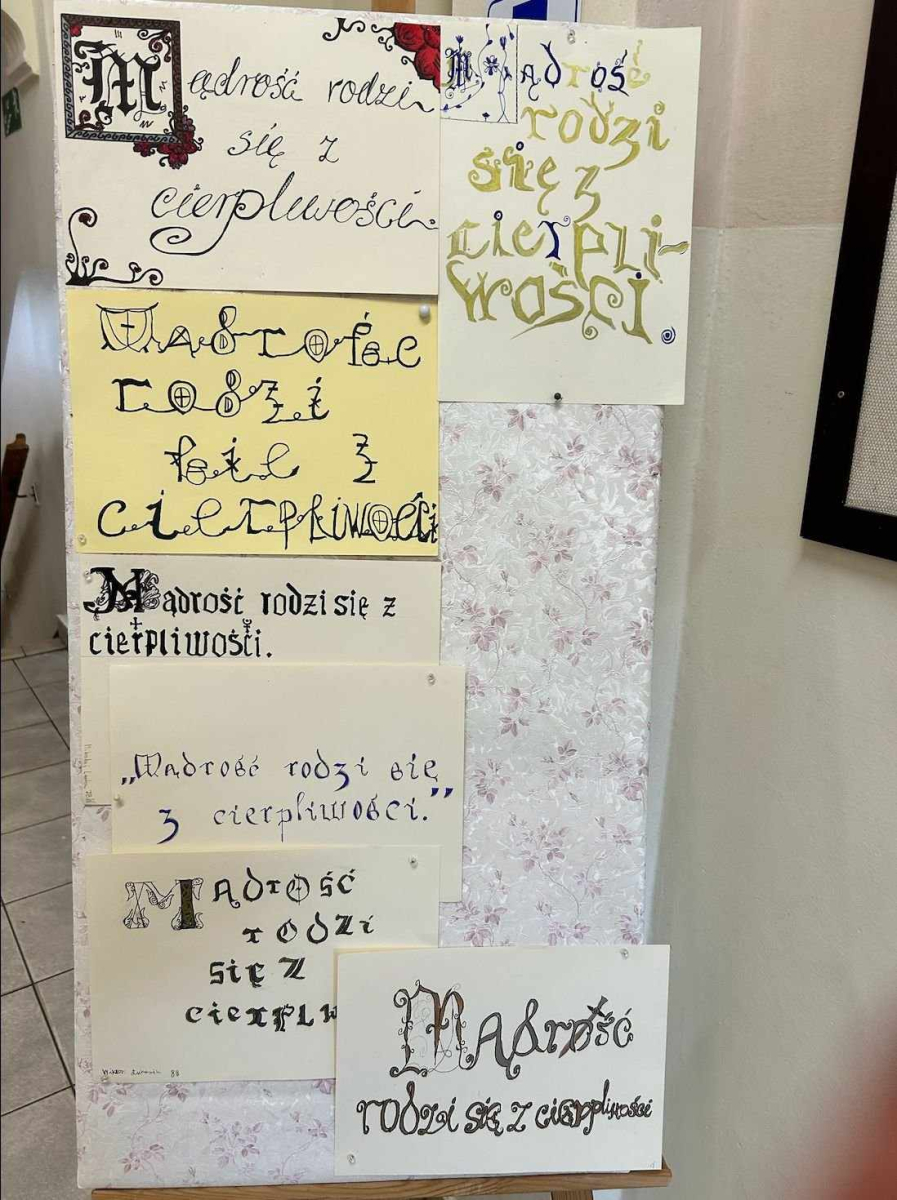 Mądrość rodzi
się z
cierpliwości.
Mądrość
rodzi
się z
cierpli-
wości.
Mądrość
rodzi
się z
cierpliwości
Mądrość rodzi się z
cierpliwości.
„Mądrość rodzi się
z cierpliwości.”
Mądrość
rodzi
się z
cierpliw
Mądrość
rodzi się z cierpliwości